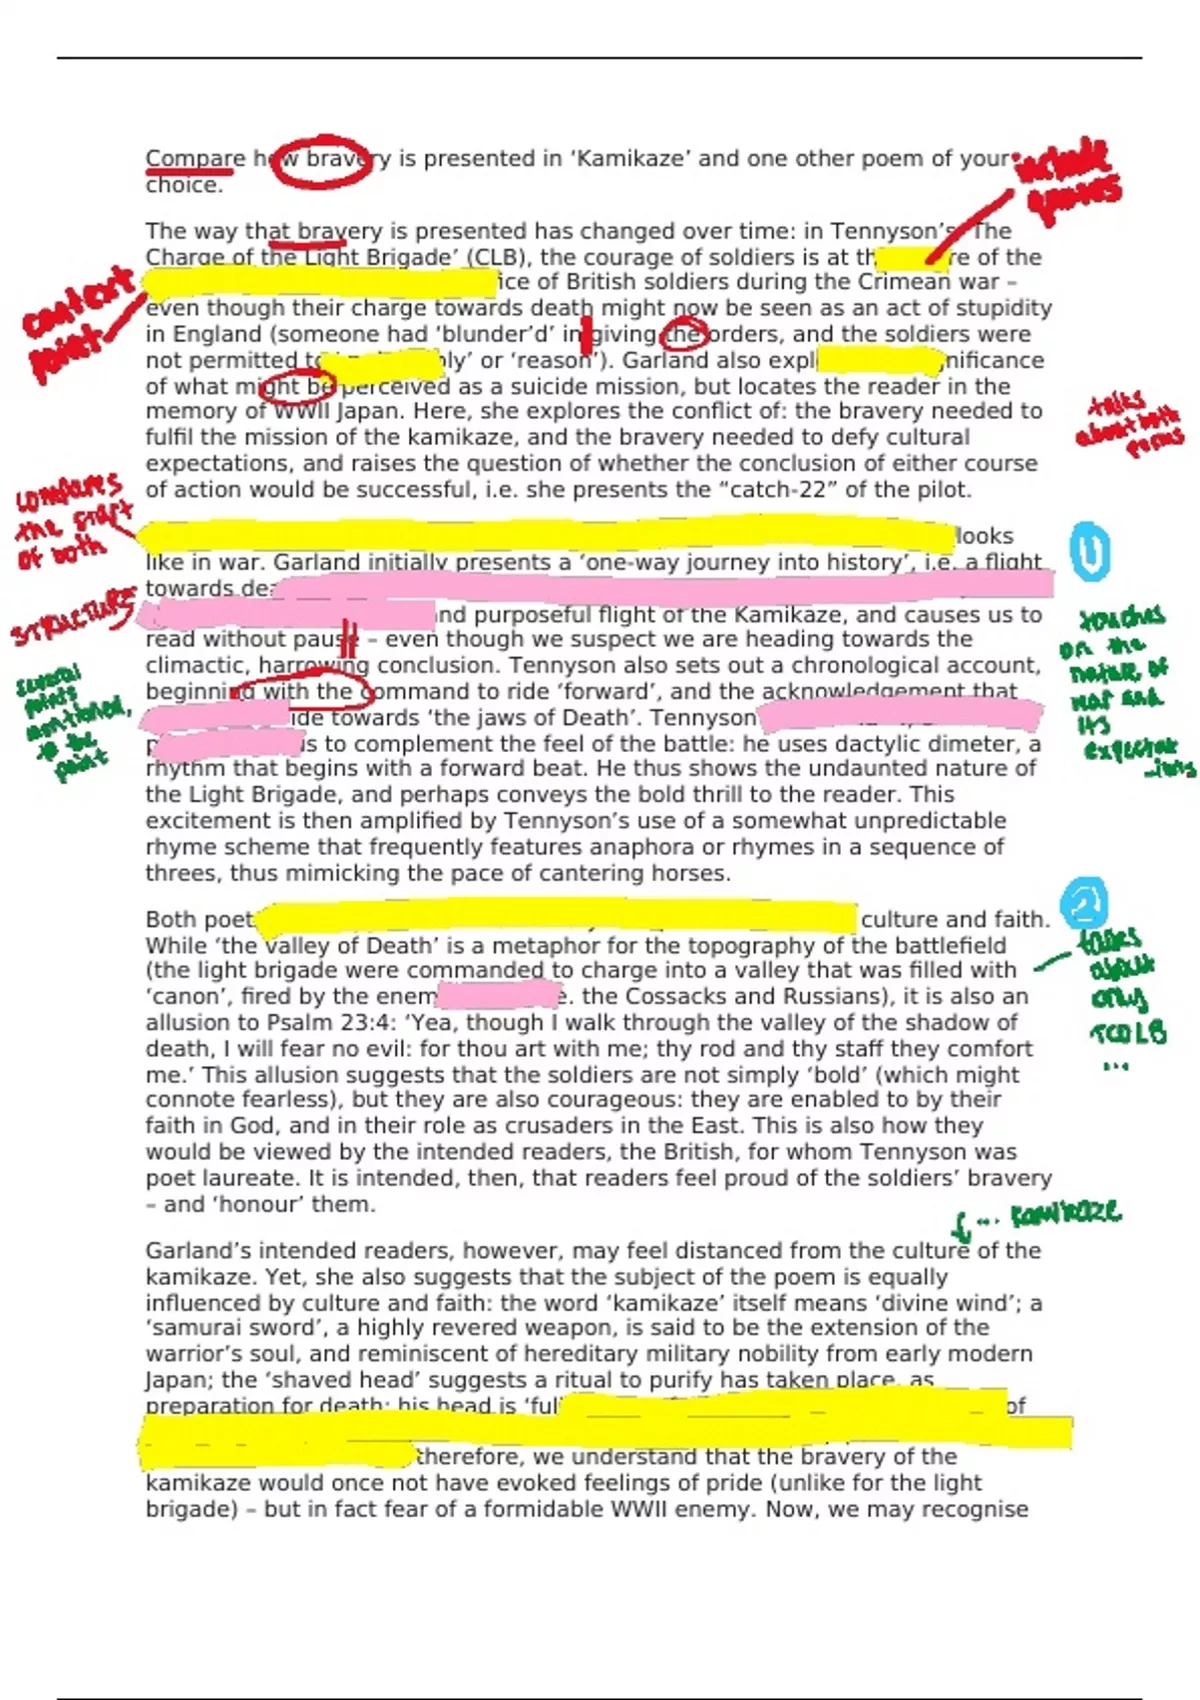 Compare how bravery is presented in ‘Kamikaze’ and one other poem of your
choice.
include
quotes
The way that bravery is presented has changed over time: in Tennyson’s ‘The
Charge of the Light Brigade’ (CLB), the courage of soldiers is at the of the
context
point
ice of British soldiers during the Crimean war –
even though their charge towards death might now be seen as an act of stupidity
in England (someone had ‘blunder’d’ in giving the orders, and the soldiers were
not permitted to ly’ or ‘reason’). Garland also expl nificance
of what might be perceived as a suicide mission, but locates the reader in the
memory of WWII Japan. Here, she explores the conflict of: the bravery needed to
fulfil the mission of the kamikaze, and the bravery needed to defy cultural
expectations, and raises the question of whether the conclusion of either course
of action would be successful, i.e. she presents the “catch-22” of the pilot.
talks
about both
poems
compares
the start
of both
looks
like in war. Garland initially presents a ‘one-way journey into history’, i.e. a flight
towards dea
STRUCTURE
and purposeful flight of the Kamikaze, and causes us to
read without pause – even though we suspect we are heading towards the
climactic, harrowing conclusion. Tennyson also sets out a chronological account,
beginning with the command to ride ‘forward’, and the acknowledgement that
ide towards ‘the jaws of Death’. Tennyson
p is to complement the feel of the battle: he uses dactylic dimeter, a
rhythm that begins with a forward beat. He thus shows the undaunted nature of
the Light Brigade, and perhaps conveys the bold thrill to the reader. This
excitement is then amplified by Tennyson’s use of a somewhat unpredictable
rhyme scheme that frequently features anaphora or rhymes in a sequence of
threes, thus mimicking the pace of cantering horses.
several
points
mentioned,
in the
point
1
touches
on the
nature of
war and
its
expectat
-ions
Both poet culture and faith.
While ‘the valley of Death’ is a metaphor for the topography of the battlefield
(the light brigade were commanded to charge into a valley that was filled with
‘canon’, fired by the enem e. the Cossacks and Russians), it is also an
allusion to Psalm 23:4: ‘Yea, though I walk through the valley of the shadow of
death, I will fear no evil: for thou art with me; thy rod and thy staff they comfort
me.’ This allusion suggests that the soldiers are not simply ‘bold’ (which might
connote fearless), but they are also courageous: they are enabled to by their
faith in God, and in their role as crusaders in the East. This is also how they
would be viewed by the intended readers, the British, for whom Tennyson was
poet laureate. It is intended, then, that readers feel proud of the soldiers’ bravery
– and ‘honour’ them.
2
talks
about
only
TCOLB
...
... Kamikaze
Garland’s intended readers, however, may feel distanced from the culture of the
kamikaze. Yet, she also suggests that the subject of the poem is equally
influenced by culture and faith: the word ‘kamikaze’ itself means ‘divine wind’; a
‘samurai sword’, a highly revered weapon, is said to be the extension of the
warrior’s soul, and reminiscent of hereditary military nobility from early modern
Japan; the ‘shaved head’ suggests a ritual to purify has taken place, as
preparation for death; his head is ‘full of
therefore, we understand that the bravery of the
kamikaze would once not have evoked feelings of pride (unlike for the light
brigade) – but in fact fear of a formidable WWII enemy. Now, we may recognise